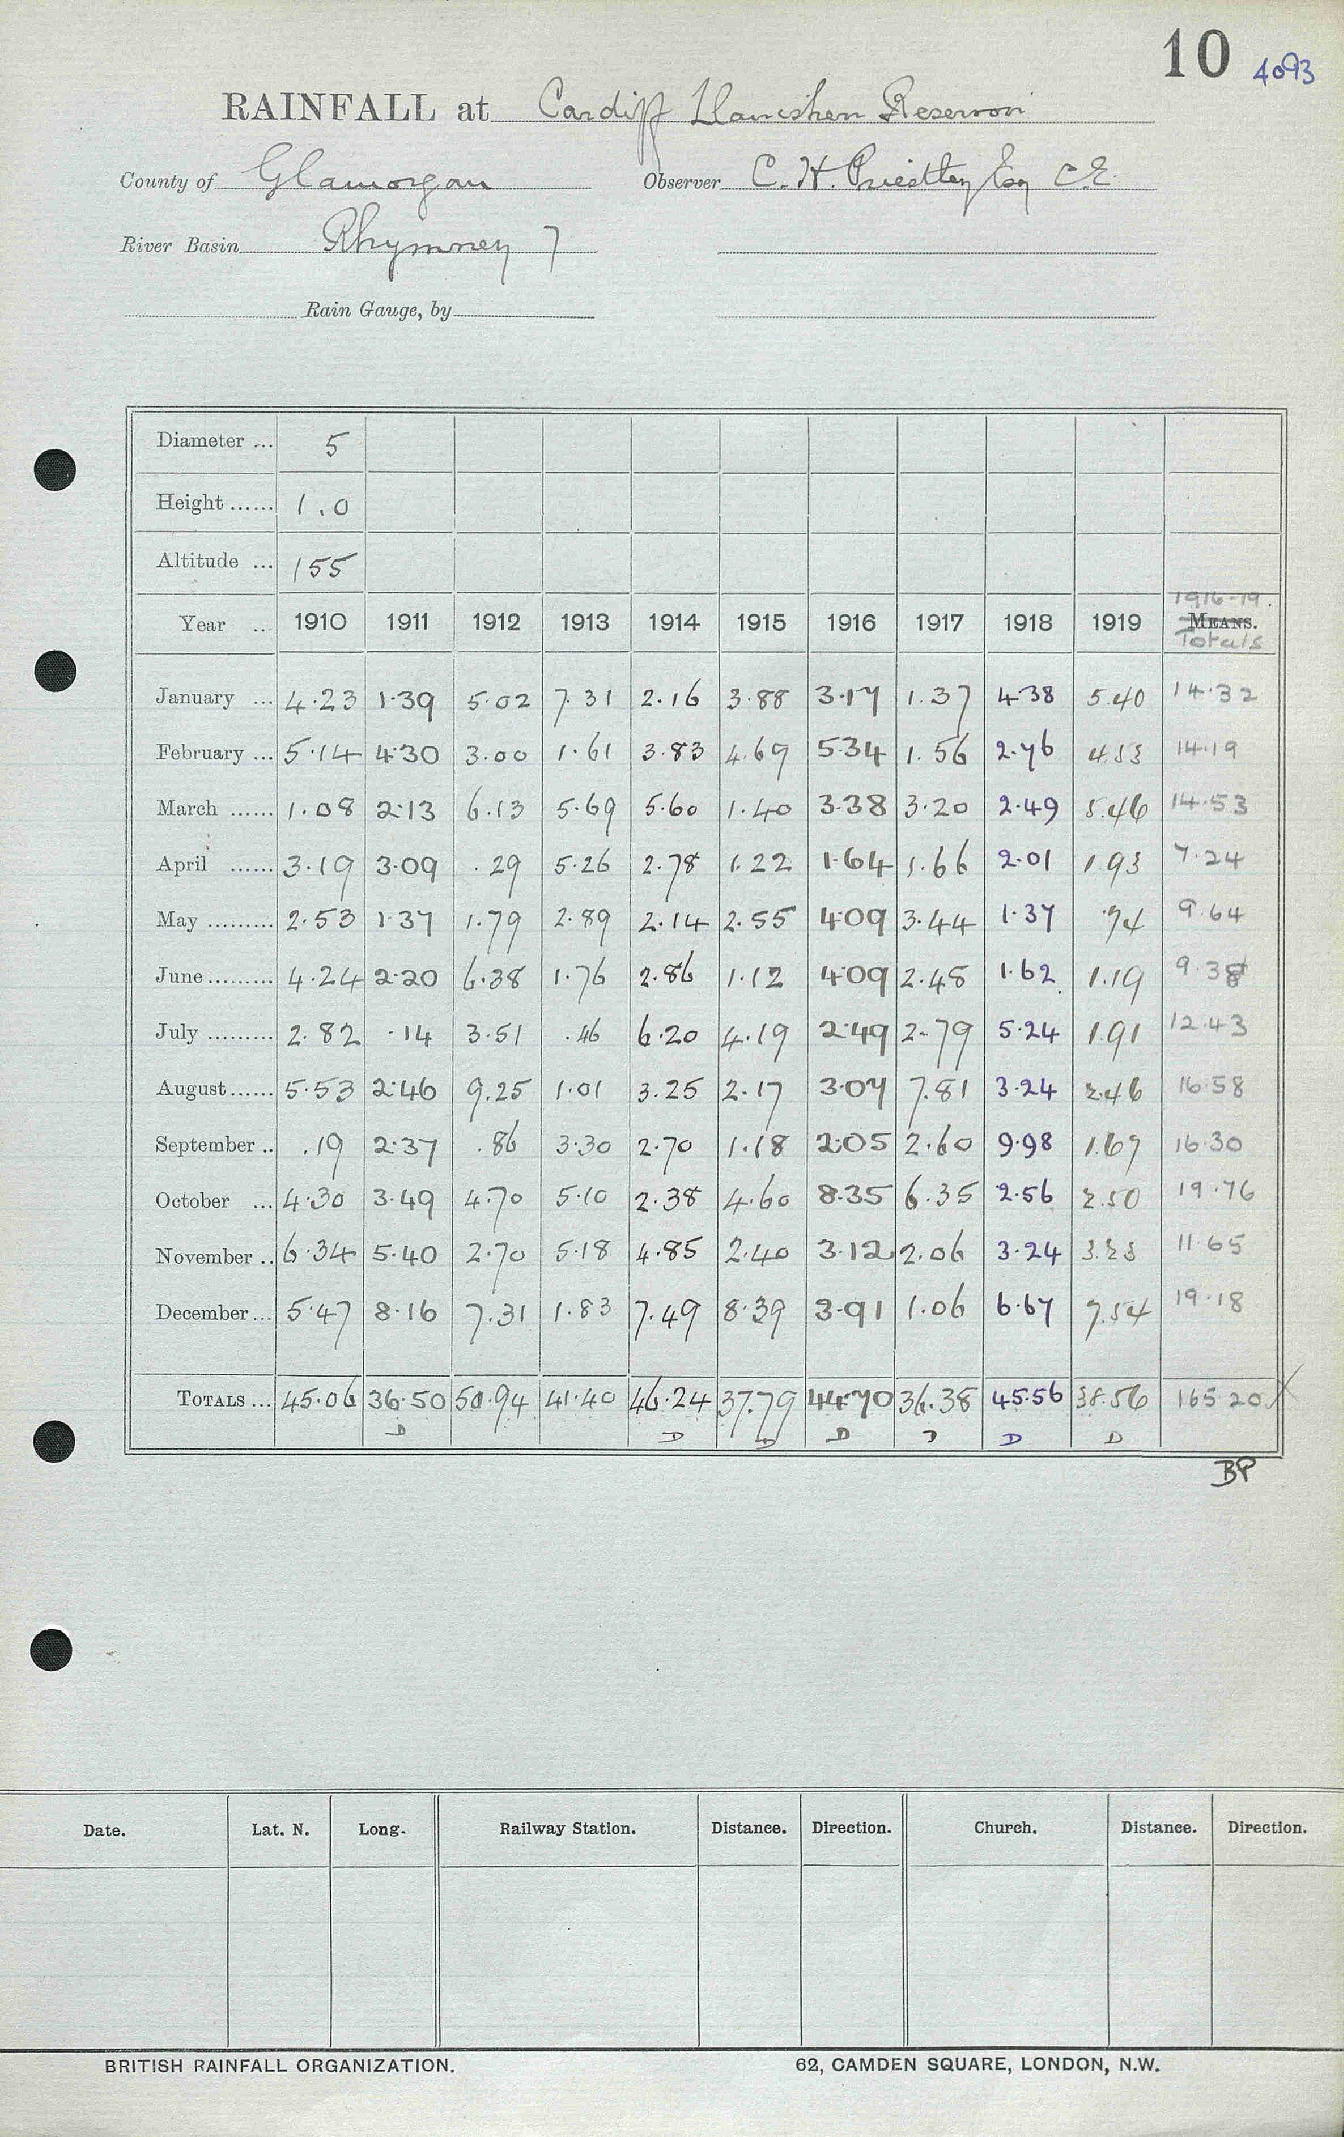 10 4093
RAINFALL at Cardiff Llanishen Reservoir
County of Glamorgan Observer C. H. Priestley Esq C.E.
River Basin Rhymney 7
Rain Gauge, by
Diameter ... 5
Height ...... 1.0
Altitude ... 155
1916-19.
Year ... 1910 1911 1912 1913 1914 1915 1916 1917 1918 1919 MEANS.
Totals
January ... 4.23 1.39 5.02 7.31 2.16 3.88 3.17 1.37 4.38 5.40 14.32
February ... 5.14 4.30 3.00 1.61 3.83 4.69 5.34 1.56 2.76 4.53 14.19
March ...... 1.08 2.13 6.13 5.69 5.60 1.40 3.38 3.20 2.49 5.46 14.53
April ...... 3.19 3.09 .29 5.26 2.78 1.22 1.64 1.66 2.01 1.93 7.24
May ......... 2.53 1.37 1.79 2.89 2.14 2.55 4.09 3.44 1.37 .74 9.64
June ......... 4.24 2.20 6.38 1.76 2.86 1.12 4.09 2.48 1.62 1.19 9.38
July ......... 2.82 .14 3.51 .46 6.20 4.19 2.49 2.79 5.24 1.91 12.43
August ...... 5.53 2.46 9.25 1.01 3.25 2.17 3.07 7.81 3.24 2.46 16.58
September .. .19 2.37 .86 3.30 2.70 1.18 2.05 2.60 9.98 1.67 16.30
October ... 4.30 3.49 4.70 5.10 2.38 4.60 8.35 6.35 2.56 2.50 19.76
November .. 6.34 5.40 2.70 5.18 4.85 2.40 3.12 2.06 3.24 3.23 11.65
December ... 5.47 8.16 7.31 1.83 7.49 8.39 3.91 1.06 6.67 7.54 19.18
TOTALS ... 45.06 36.50 50.94 41.40 46.24 37.79 44.70 36.38 45.56 38.56 165.20 X
D D D D D D D
BP
Date. Lat. N. Long. Railway Station. Distance. Direction. Church. Distance. Direction.
BRITISH RAINFALL ORGANIZATION. 62, CAMDEN SQUARE, LONDON, N.W.